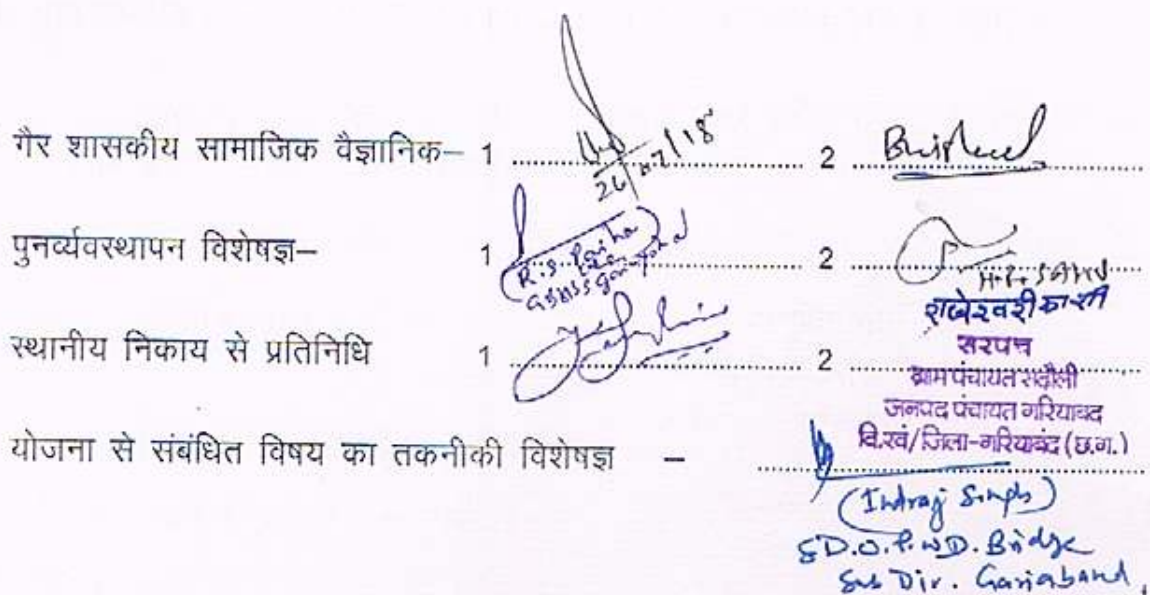 गैर शासकीय सामाजिक वैज्ञानिक– 1 ........ 2 ........
26/07/18
पुनर्व्यवस्थापन विशेषज्ञ– 1 ........ 2 ........
(R.S.
H.R. SAHU
स्थानीय निकाय से प्रतिनिधि 1 ........ 2 ........
सरपंच
ग्राम पंचायत
जनपद पंचायत गरियाबंद
वि.खं/जिला-गरियाबंद (छ.ग.)
योजना से संबंधित विषय का तकनीकी विशेषज्ञ – ........
(Indraj Singh)
S.D.O. P.W.D. Bridge
Sub Div. Gariaband,